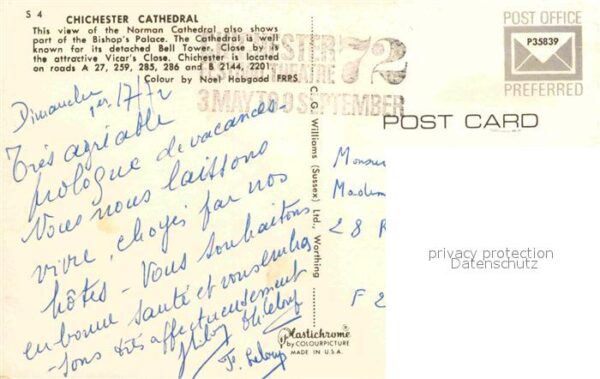 S 4
CHICHESTER CATHEDRAL
This view of the Norman Cathedral also shows
part of the Bishop's Palace. The Cathedral is well
known for its detached Bell Tower. Close by is
the attractive Vicar's Close. Chichester is located
on roads A 27, 259, 285, 286 and B 2144, 2201.
Colour by Noel Habgood FRPS
72
THEATRE
3 MAY TO 9 SEPTEMBER
POST OFFICE
P35839
PREFERRED
POST CARD
Dimanche
Très agréable
prologue de vacances.
Nous nous laissons
vivre, choyés par nos
hôtes - Vous souhaitons
en bonne santé et vous embras
-sons très affectueusement
F. Leloup
C. G. Williams (Sussex) Ltd., Worthing
Monsieu
Madam
28 R
F 2
privacy protection
Datenschutz
Plastichrome
by COLOURPICTURE
MADE IN U.S.A.